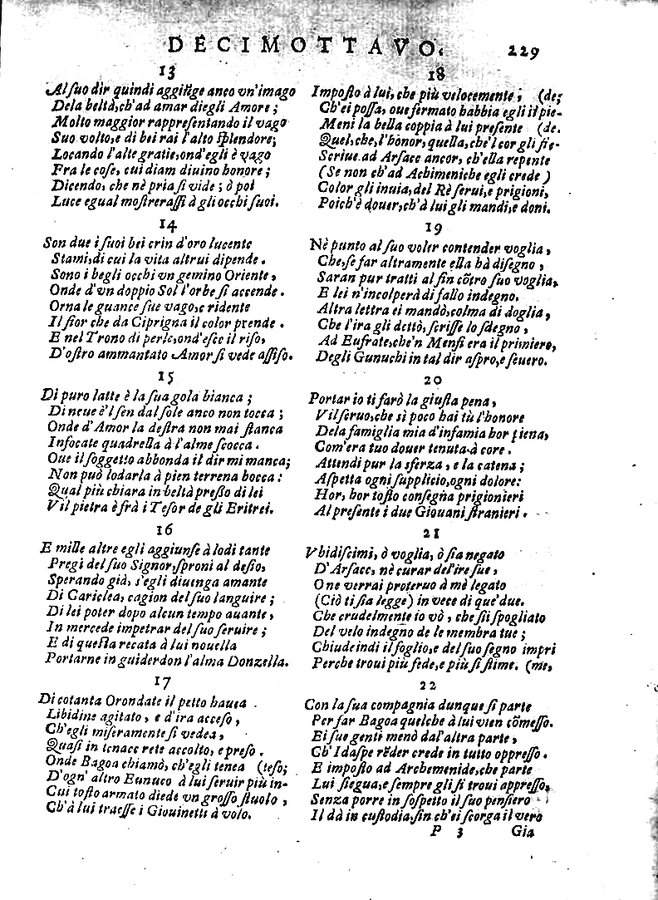 DECIMOTTAVO. 229
13
Al suo dir quindi aggiũge anco vn'imago
Dela beltà, ch'ad amar diegli Amore;
Molto maggior rappresentando il vago
Suo volto, e di bei rai l'alto splendore;
Locando l'alte gratie, ond'egli è vago
Fra le cose, cui diam diuino honore;
Dicendo, che nè pria si vide; ò poi
Luce egual mostrerassi à gli occhi suoi.
14
Son due i suoi bei crin d'oro lucente
Stami, di cui la vita altrui dipende.
Sono i begli occhi vn gemino Oriente,
Onde d'vn doppio Sol l'orbe si accende.
Orna le guance sue vago, e ridente
Il fior che da Ciprigna il color prende.
E nel Trono di perle, ond'esce il riso,
D'ostro ammantato Amor si vede assiso.
15
Di puro latte è la sua gola bianca;
Di neue è'l sen dal sole anco non tocca;
Onde d'Amor la destra non mai stanca
Infocate quadrella à l'alme scocca.
Oue il soggetto abbonda il dir mi manca;
Non può lodarla à pien terrena bocca:
Qual più chiara in beltà presso di lei
Vil pietra è frà i Tesor de gli Eritrei.
16
E mille altre egli aggiunse à lodi tante
Pregi del suo Signor, sproni al desio,
Sperando già, s'egli diuenga amante
Di Cariclea, cagion del suo languire;
Di lei poter dopo alcun tempo auante,
In mercede impetrar del suo seruire;
E di questa recata à lui nouella
Portarne in guiderdon l'alma Donzella.
17
Di cotanta Orondate il petto hauea
Libidine agitato, e d'ira acceso,
Ch'egli miseramente si vedea,
Quasi in tenace rete accolto, e preso.
Onde Bagoa chiamò, ch'egli tenea (teso;
D'ogn'altro Eunuco à lui seruir più in-
Cui tosto armato diede vn grosso stuolo,
Ch'à lui traesse i Giouinetti à volo.
18
Imposto à lui, che più velocemente, (de;
Ch'ei possa, oue fermato habbia egli il pie-
Meni la bella coppia à lui presente (de.
Quel, che, l'honor; quella, che'l cor gli fie-
Scriue ad Arsace ancor, ch'ella repente
(Se non ch'ad Achimeniche egli crede)
Color gli inuia, del Rè serui, e prigioni,
Poich'è douer, ch'à lui gli mandi, e doni.
19
Nè punto al suo voler contender voglia,
Che, se far altramente ella hà disegno,
Saran pur tratti al fin cõtro suo voglia,
E lei n'incolperà di fallo indegno.
Altra lettra ei mandò, colma di doglia,
Che l'ira gli dettò, scrisse lo sdegno,
Ad Eufrate, che'n Menfi era il primiero,
Degli Gunuchi in tal dir aspro, e seuero.
20
Portar io ti farò la giusta pena,
Vil seruo, che sì poco hai tù l'honore
Dela famiglia mia d'infamia hor piena,
Com'era tuo douer tenuta à core.
Attendi pur la sferza, e la catena;
Aspetta ogni supplicio, ogni dolore:
Hor, hor tosto consegna prigionieri
Al presente i due Giouani stranieri.
21
Vbidiscimi, ò voglia, ò sia negato
D'Arsace, nè curar del'ire sue,
O ne verrai proteruo à mè legato
(Ciò ti sia legge) in vece di que' due.
Che crudelmente io vò, che sii spogliato
Del velo indegno de le membra tue;
Chiudeindi il foglio, e del suo segno impri
Perche troui più fede, e più si stime. (me,
22
Con la sua compagnia dunque si parte
Per far Bagoa quelche à lui vien cõmesso.
Ei sue genti menò dal'altra parte,
Ch'Idaspe rẽder crede in tutto oppresso.
E imposto ad Archemenide, che parte
Lui siegua, e sempre gli si troui appresso,
Senza porre in sospetto il suo pensiero
Il dà in custodia, fin ch'ei scorga il vero
P 3 Gia